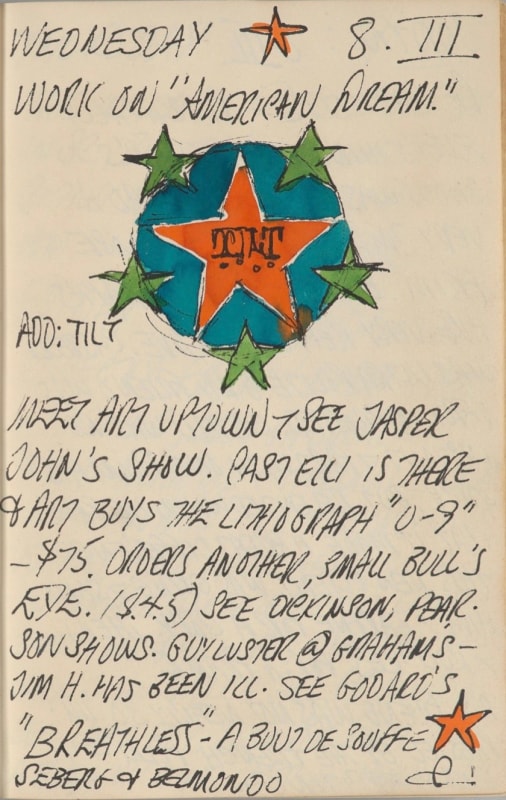 WEDNESDAY 8. III
WORK ON "AMERICAN DREAM."
TILT
ADD: TILT
MEET ART UPTOWN & SEE JASPER
JOHN'S SHOW. CASTELLI IS THERE
& ART BUYS THE LITHOGRAPH "0-9"
- $75. ORDERS ANOTHER, SMALL BULL'S
EYE. ($45) SEE DICKINSON, PEAR-
SON SHOWS. GUY LUSTER @ GRAHAMS -
JIM H. HAS BEEN ILL. SEE GODARD'S
"BREATHLESS" - A BOUT DE SOUFFE
SEBERG & BELMONDO